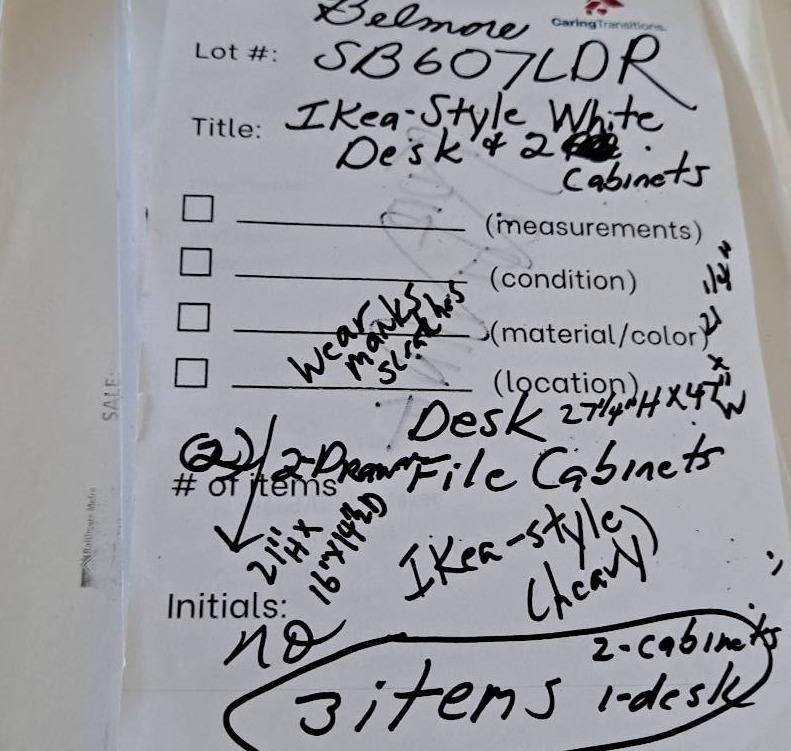 Belmore
CaringTransitions.
Lot #: SB607LDR
Title: IKea-Style White
Desk & 2
Cabinets
(measurements)
(condition)
(material/color)
(location)
wear
marks
Desk 27 1/4" H X 47" W
X
21
1/4"
(2) 2-Drawer File Cabinets
# of items
21" H X
16" X 14 1/2 D
IKea-style
(heavy)
Initials:
no
2-cabinets
3 items 1-desk
SALE: